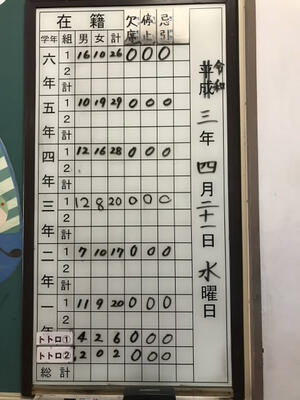 在籍 欠席 停止 忌引
学年 組 男 女 計
六年 1 16 10 26 0 0 0
2
計
五年 1 10 19 29 0 0 0
2
計
四年 1 12 16 28 0 0 0
2
計
三年 1 12 8 20 0 0 0
2
計
二年 1 7 10 17 0 0 0
2
計
一年 1 11 9 20 0 0 0
2
トトロ① 4 2 6 0 0 0
トトロ② 2 0 2 0 0 0
総計
平成 令和 三年 四月 二十一日 水曜日